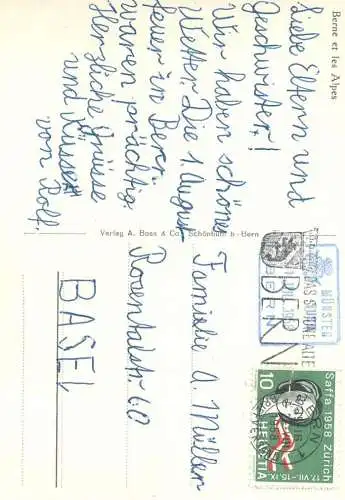 Berne et les Alpes
Liebe Eltern und
Geschwister!
Wir haben schönes
Wetter. Die 1. August
feuer in Bern
waren prächtig.
Herzliche Grüsse
und Küsse
von Rolf.
Verlag A. Boss & Co. Schönbühl b. Bern
Familie A. Müller
Rosentalstr. 60
BASEL
MÜNSTER
BERN
BERN 1
Saffa 1958 Zürich
17.VII.-15.IX.
10
HELVETIA